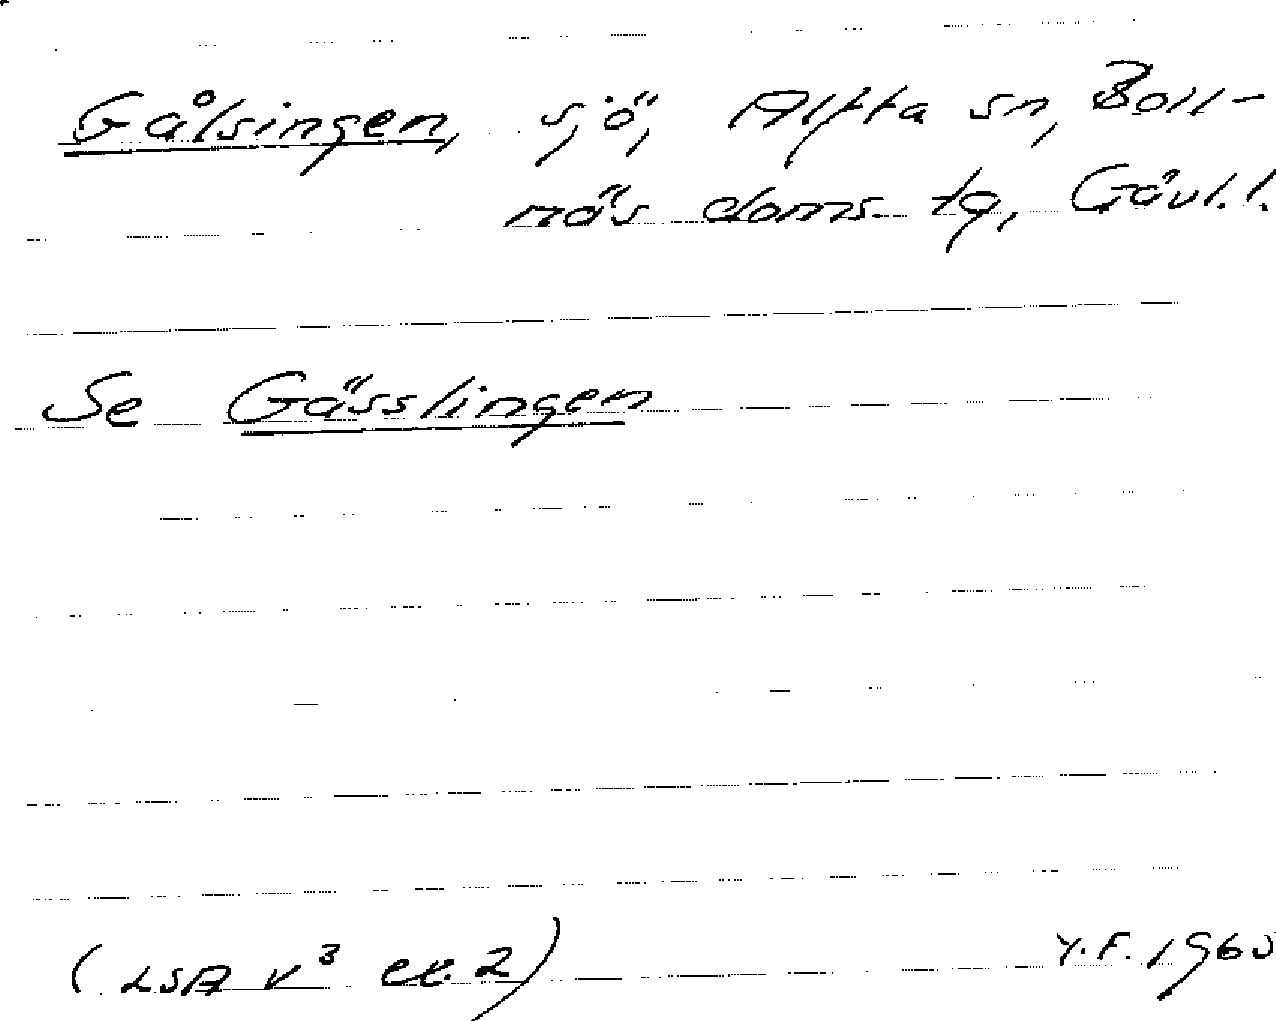 Gålsingen, sjö, Alfta sn, Boll-
näs doms. tg, Gävl.l.
Se Gässlingen
(LSA v³ ex. 2)
Y.F. 1960